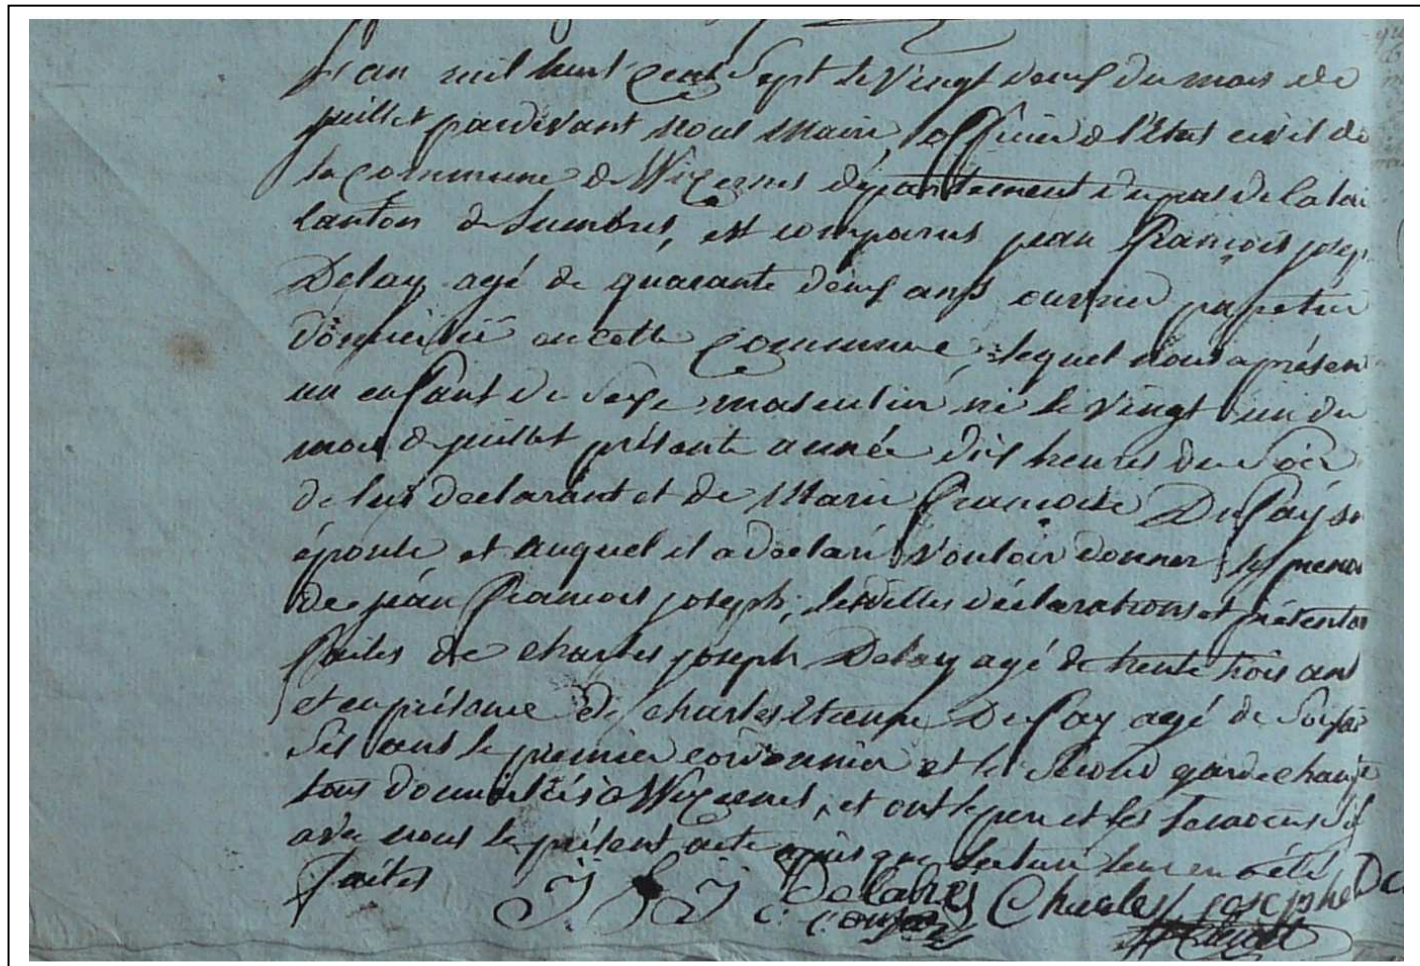 L'an mil huit cent sept le vingt deux du mois de
juillet pardevant nous maire, officier de l'état civil de
la commune de Wizernes département du pas de calai
canton de Lumbres, est comparus jean françois josep
Delay agé de quarante deux ans ouvrier papetier
domicilié en cette commune, lequel nous a présen
un enfant du sexe masculin né le vingt un du
mois de juillet présente année dix heures du soir
de lui declarant et de Marie françoise Dufay sa
épouse et auquel il a declaré vouloir donner les preno
de jean françois joseph, lesdittes déclarations et présentan
faites de charles joseph Delay agé de trente trois ans
et en présence de charles etienne Dufay agé de soixan
six ans le premier cordonnier et le second garde champe
tous domiciliés à Wizernes, et ont le pere et les temoins si
avec nous le présent acte apres que lecture leur en a été
faites J f J Delahes Charles josephe De